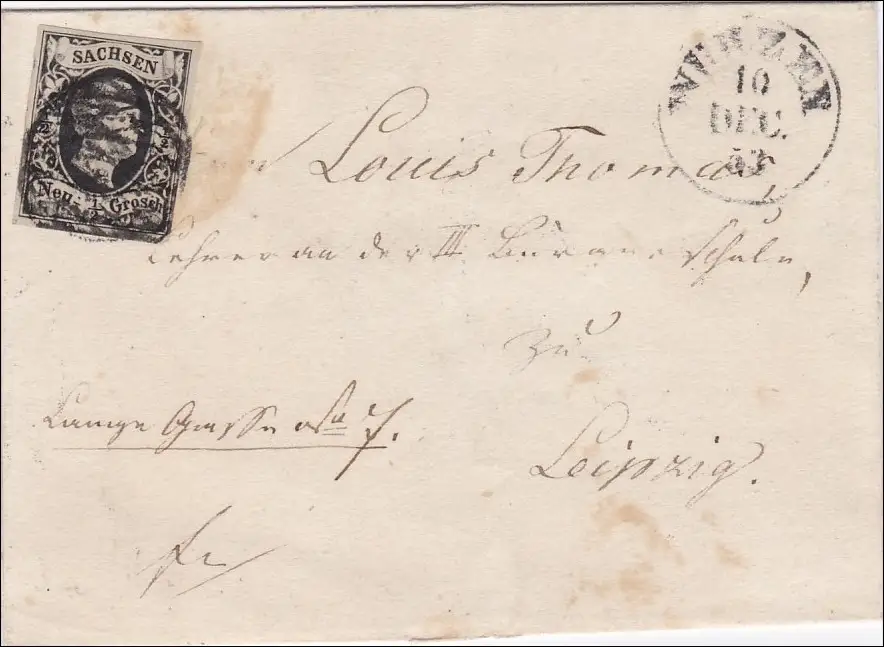 SACHSEN
Neu- 1/2 Grosch
WURZEN
10
DEC.
53
Louis Thomas,
Lehrer an der III Bürgerschule,
zu
Leipzig.
Lange Gasse No 7.
fr